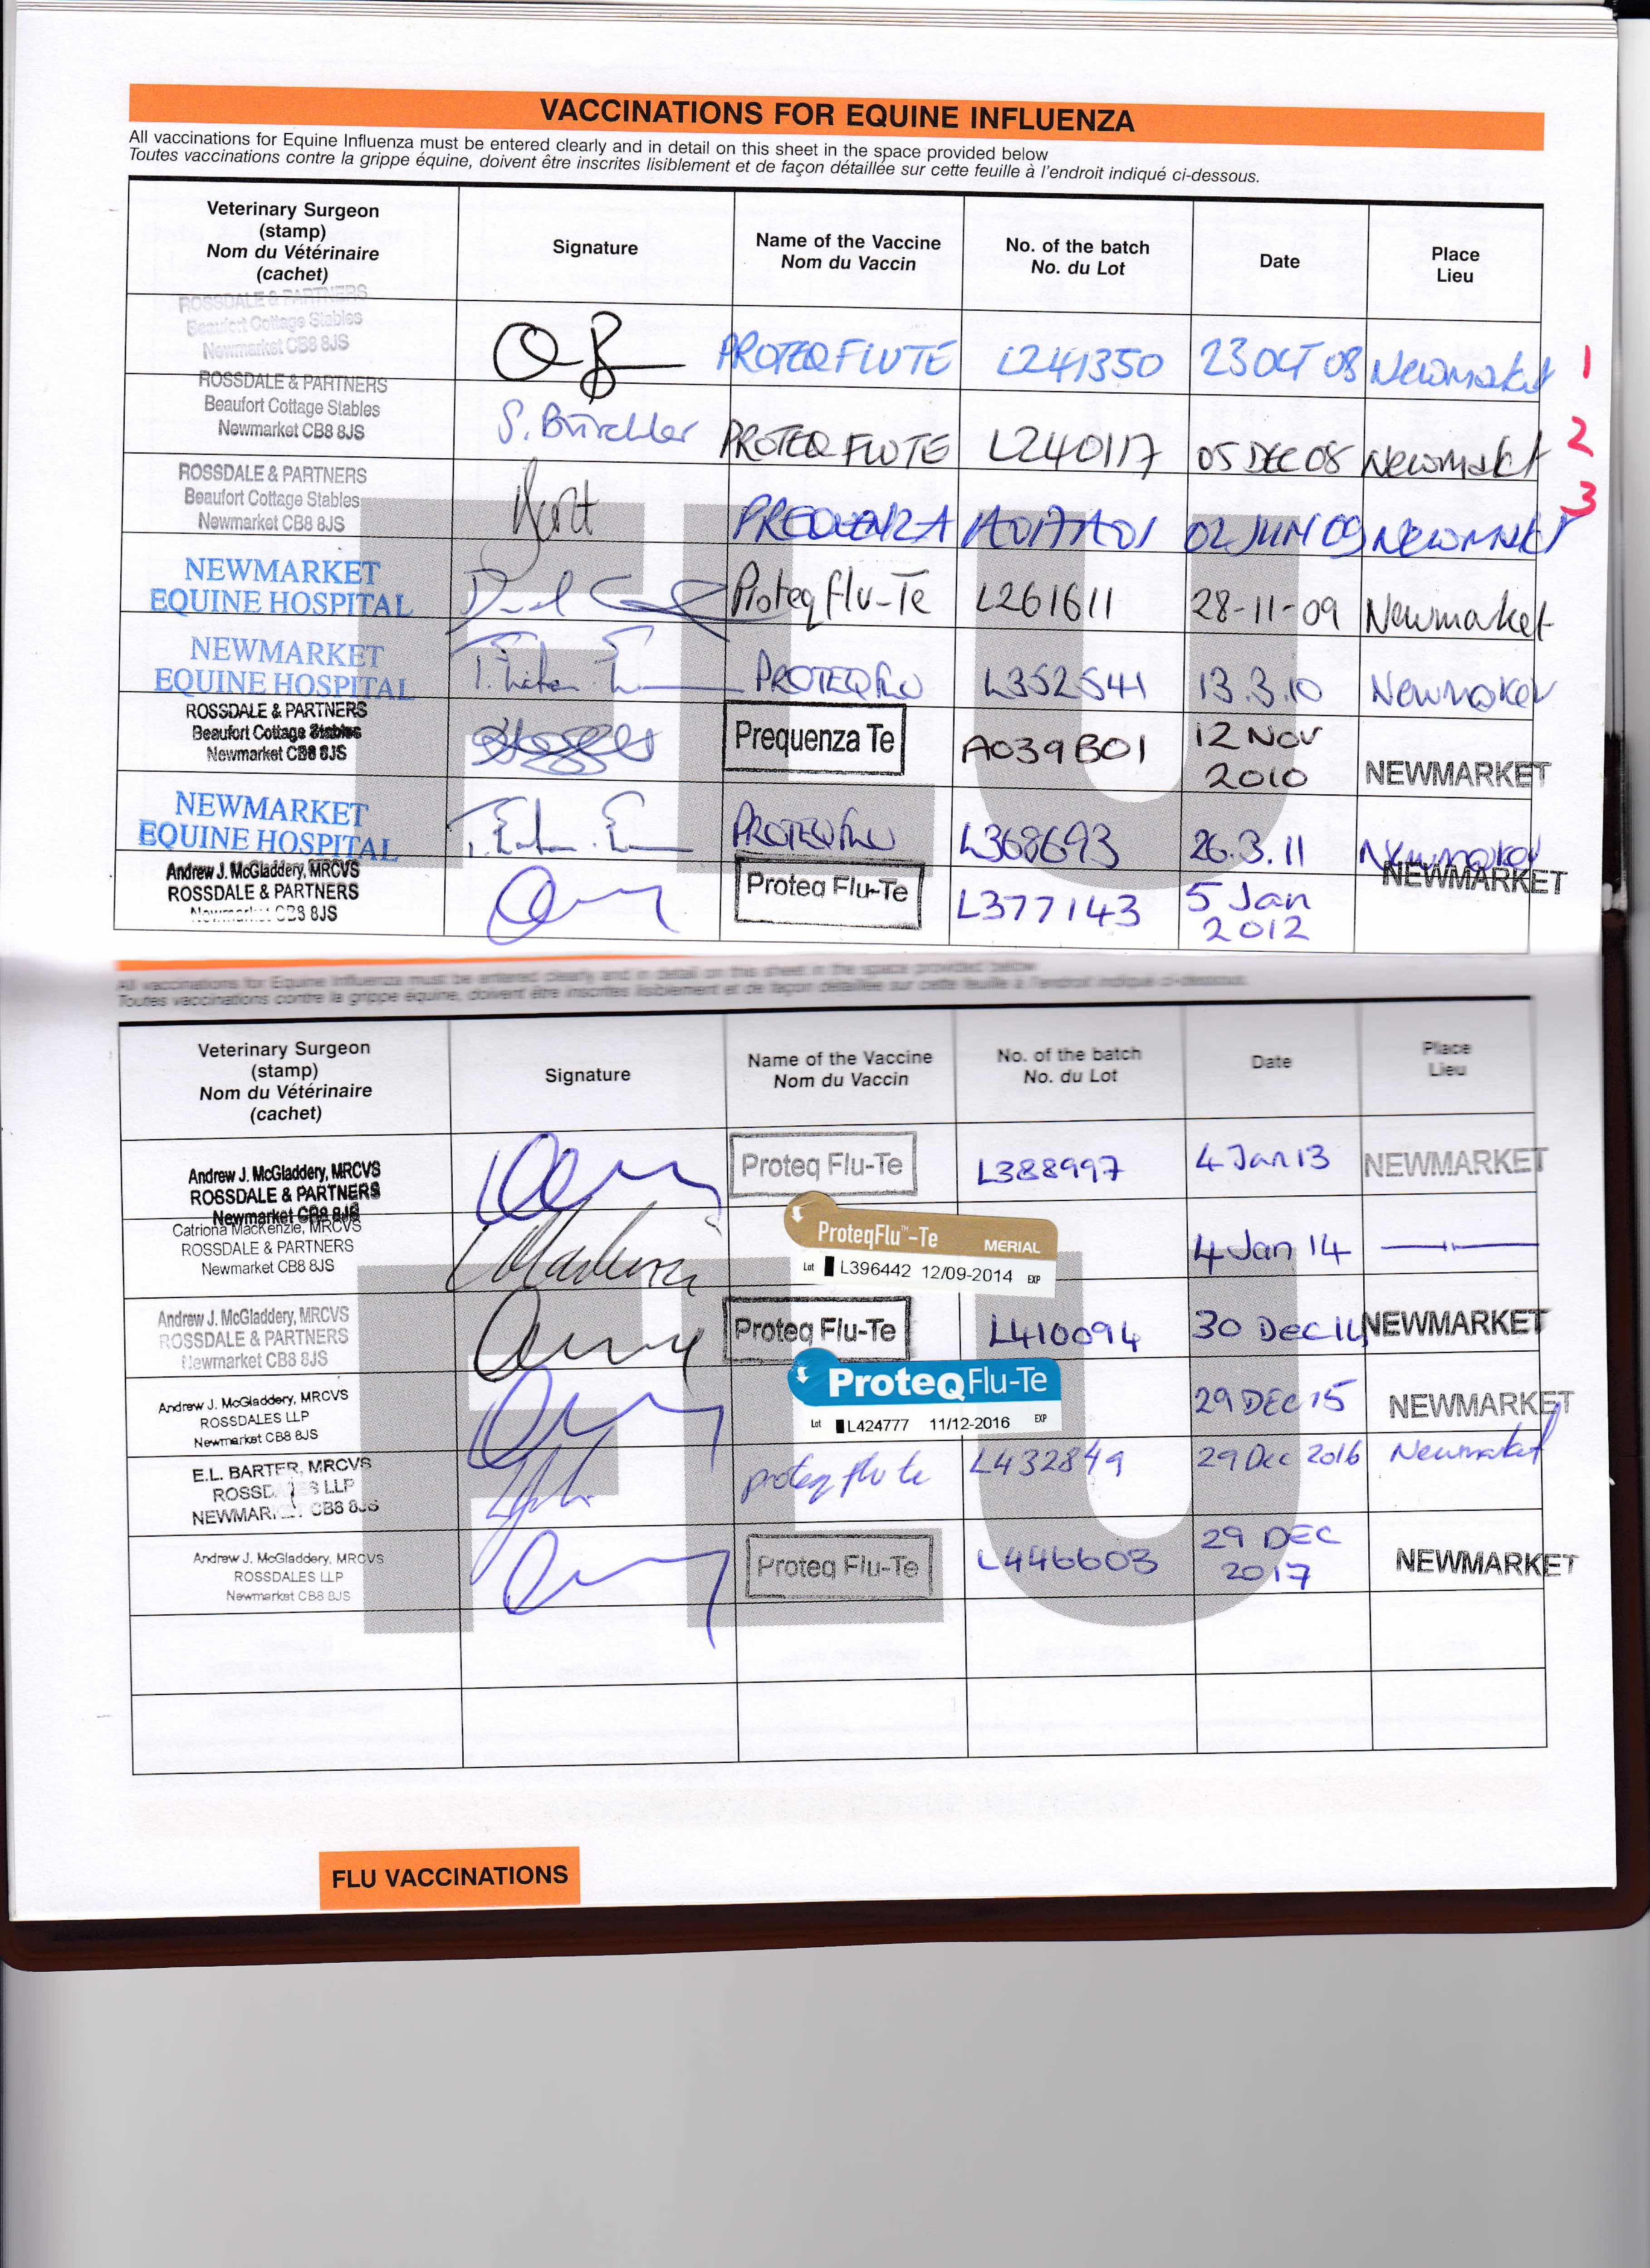 VACCINATIONS FOR EQUINE INFLUENZA
All vaccinations for Equine Influenza must be entered clearly and in detail on this sheet in the space provided below
Toutes vaccinations contre la grippe équine, doivent être inscrites lisiblement et de façon détaillée sur cette feuille à l'endroit indiqué ci-dessous.
Veterinary Surgeon
(stamp)
Nom du Vétérinaire
(cachet)
Signature
Name of the Vaccine
Nom du Vaccin
No. of the batch
No. du Lot
Date
Place
Lieu
ROSSDALE & PARTNERS
Beaufort Cottage Stables
Newmarket CB8 8JS
PROTEQ FLUTE L241350 23 OCT 08 Newmarket 1
ROSSDALE & PARTNERS
Beaufort Cottage Stables
Newmarket CB8 8JS
PROTEQ FLUTE L240117 05 DEC 08 Newmarket 2
ROSSDALE & PARTNERS
Beaufort Cottage Stables
Newmarket CB8 8JS
PREQUENZA A017A01 02 JUN 09 Newmarket 3
NEWMARKET
EQUINE HOSPITAL
Proteq flu-Te L261611 28-11-09 Newmarket
NEWMARKET
EQUINE HOSPITAL
PROTEQ flu L352541 13.3.10 Newmarket
ROSSDALE & PARTNERS
Beaufort Cottage Stables
Newmarket CB8 8JS
Prequenza Te A039B01 12 Nov
2010 NEWMARKET
NEWMARKET
EQUINE HOSPITAL
PROTEQ flu L368693 26.3.11 Newmarket
Andrew J. McGladdery, MRCVS
ROSSDALE & PARTNERS
Newmarket CB8 8JS
Proteq Flu-Te L377143 5 Jan
2012 NEWMARKET
FLU
All vaccinations for Equine Influenza must be entered clearly and in detail on this sheet in the space provided below
Toutes vaccinations contre la grippe équine, doivent être inscrites lisiblement et de façon détaillée sur cette feuille à l'endroit indiqué ci-dessous.
Veterinary Surgeon
(stamp)
Nom du Vétérinaire
(cachet)
Signature
Name of the Vaccine
Nom du Vaccin
No. of the batch
No. du Lot
Date
Place
Lieu
Andrew J. McGladdery, MRCVS
ROSSDALE & PARTNERS
Newmarket CB8 8JS
Proteq Flu-Te L388997 4 Jan 13 NEWMARKET
Catriona MacKenzie, MRCVS
ROSSDALE & PARTNERS
Newmarket CB8 8JS
ProteqFlu™-Te MERIAL
Lot L396442 12/09-2014 EXP
4 Jan 14
Andrew J. McGladdery, MRCVS
ROSSDALE & PARTNERS
Newmarket CB8 8JS
Proteq Flu-Te L410094 30 Dec 14 NEWMARKET
Andrew J. McGladdery, MRCVS
ROSSDALES LLP
Newmarket CB8 8JS
ProteqFlu-Te
Lot L424777 11/12-2016 EXP
29 DEC 15 NEWMARKET
E.L. BARTER, MRCVS
ROSSDALES LLP
NEWMARKET CB8 8JS
proteq flu te L432849 29 Dec 2016 Newmarket
Andrew J. McGladdery, MRCVS
ROSSDALES LLP
Newmarket CB8 8JS
Proteq Flu-Te L446603 29 DEC
2017 NEWMARKET
FLU
FLU VACCINATIONS